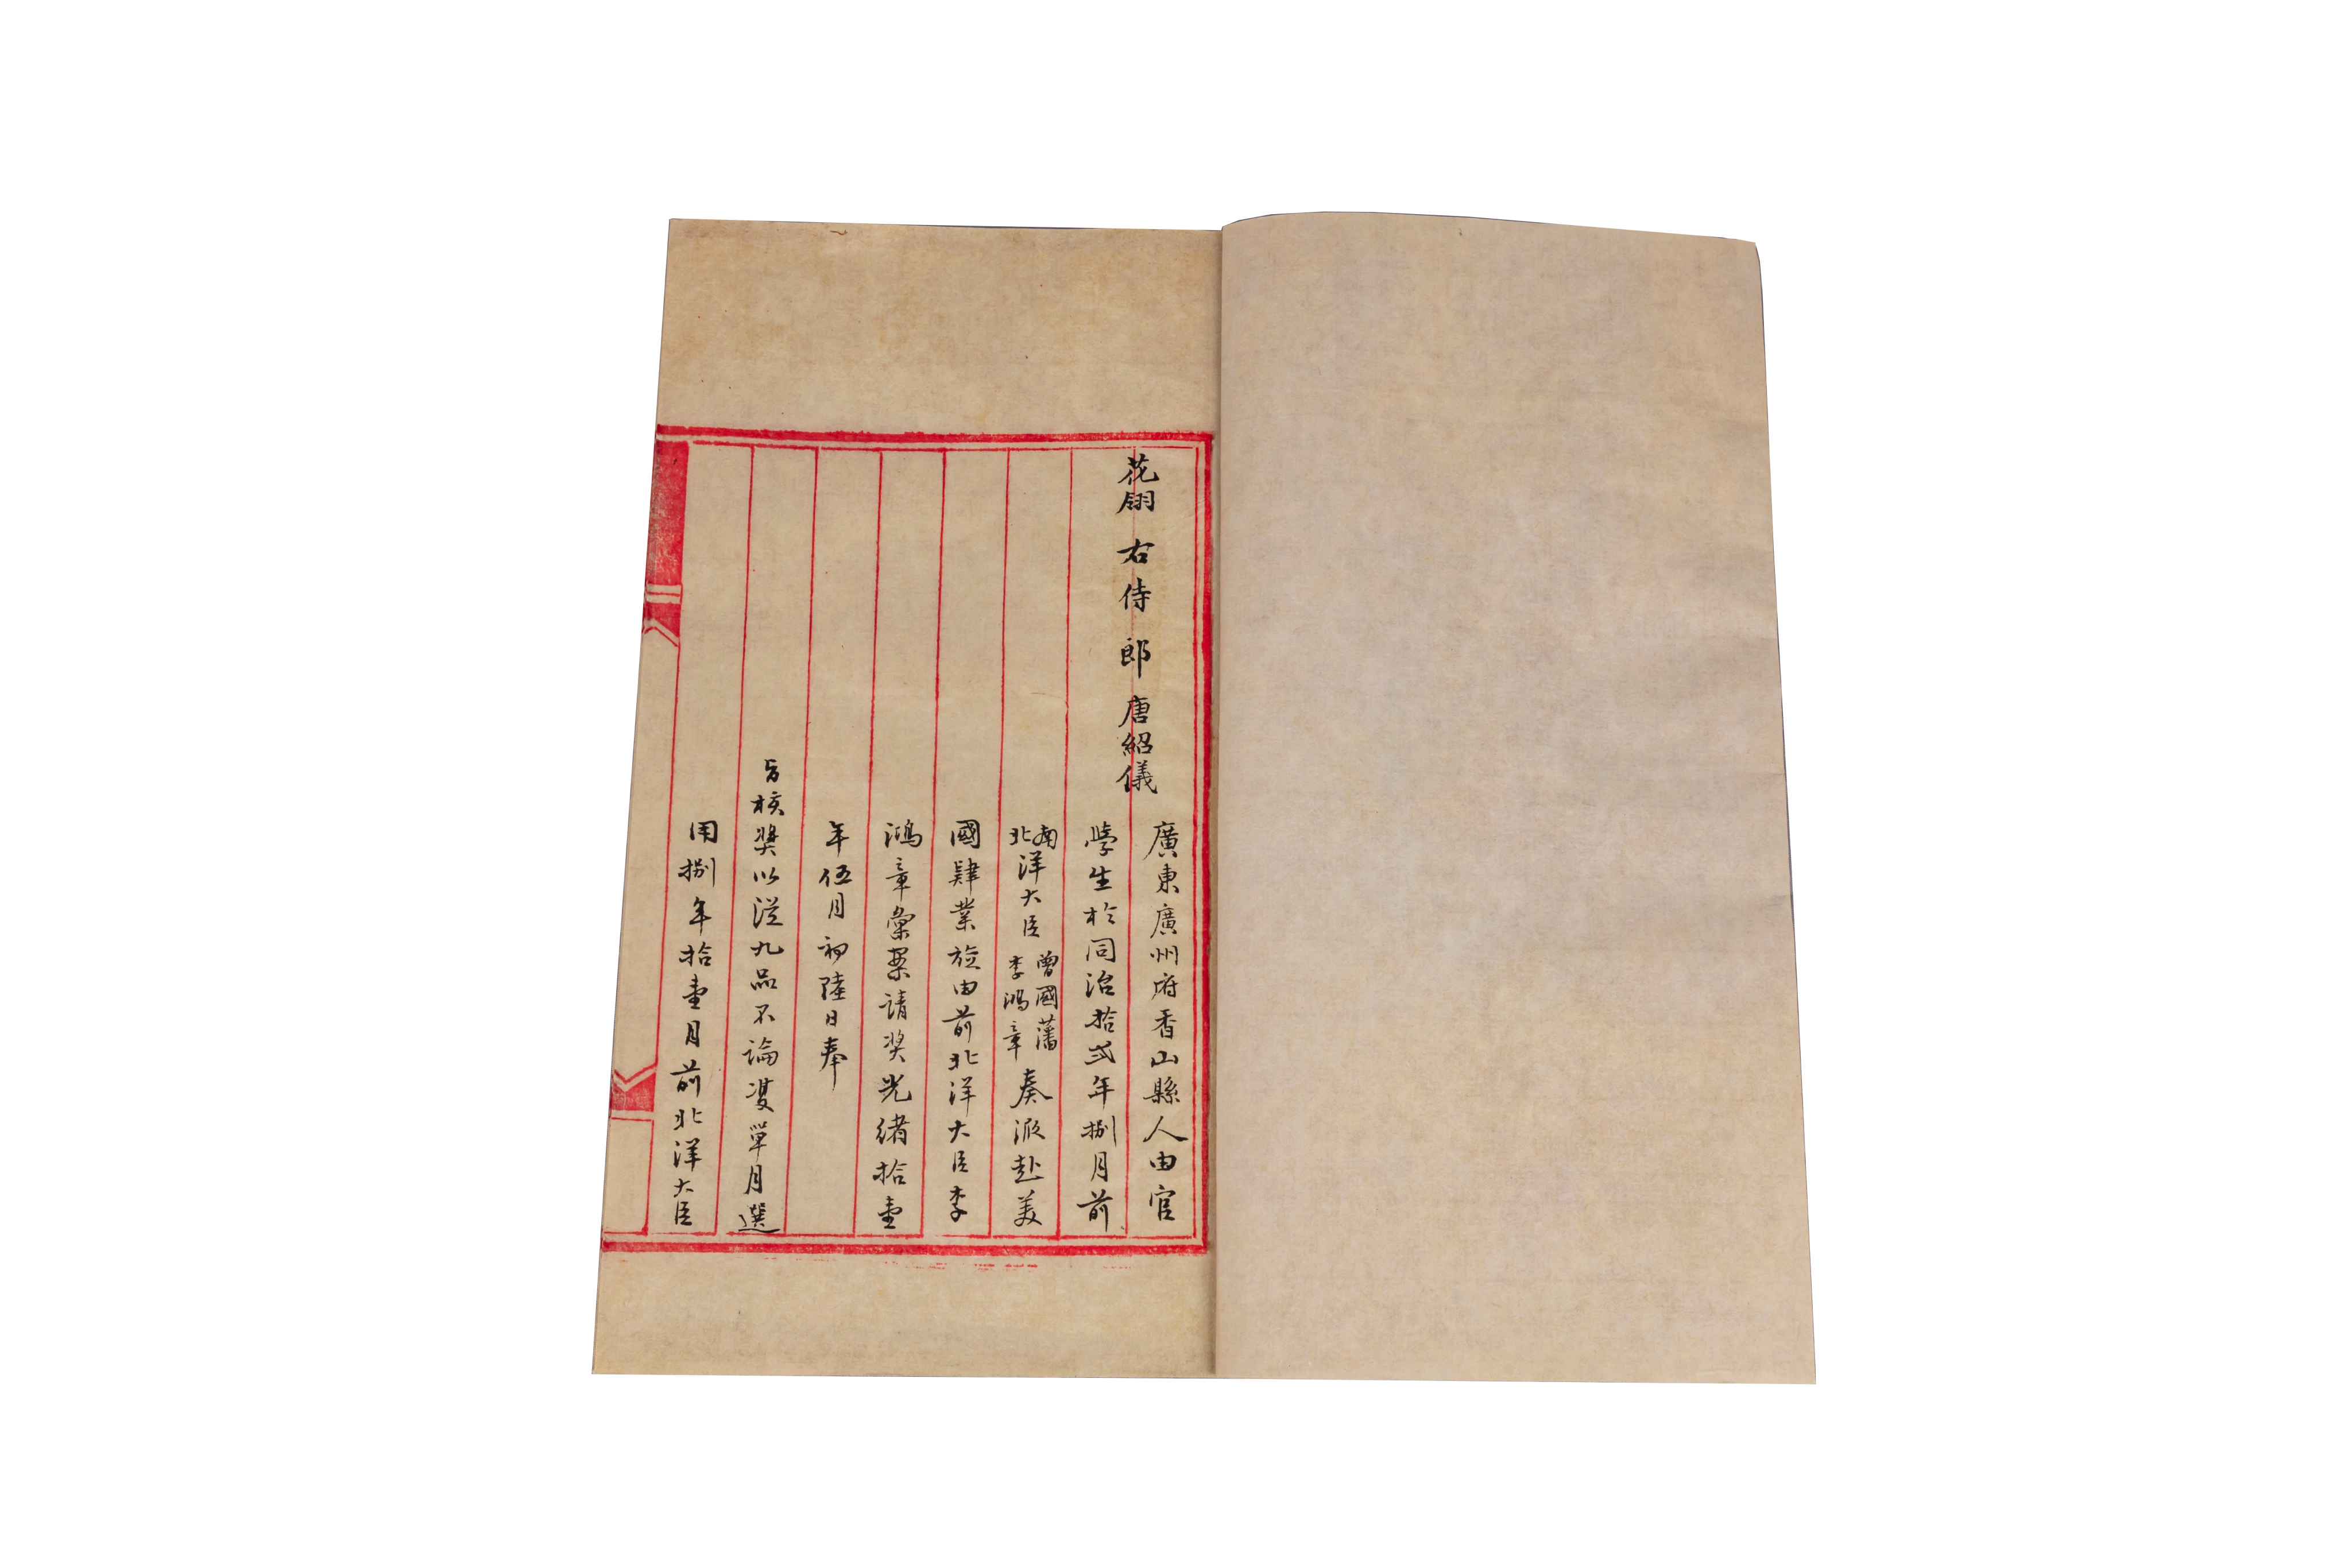 花翎 右侍郎 唐紹儀
廣東廣州府香山縣人由官
學生於同治拾貳年捌月前
南北洋大臣曾國藩李鴻章奏派赴美
國肄業旋由前北洋大臣李
鴻章彙案請奬光緒拾壹
年伍月初陸日奉
旨核奬以從九品不論雙單月選
用捌年拾壹月前北洋大臣